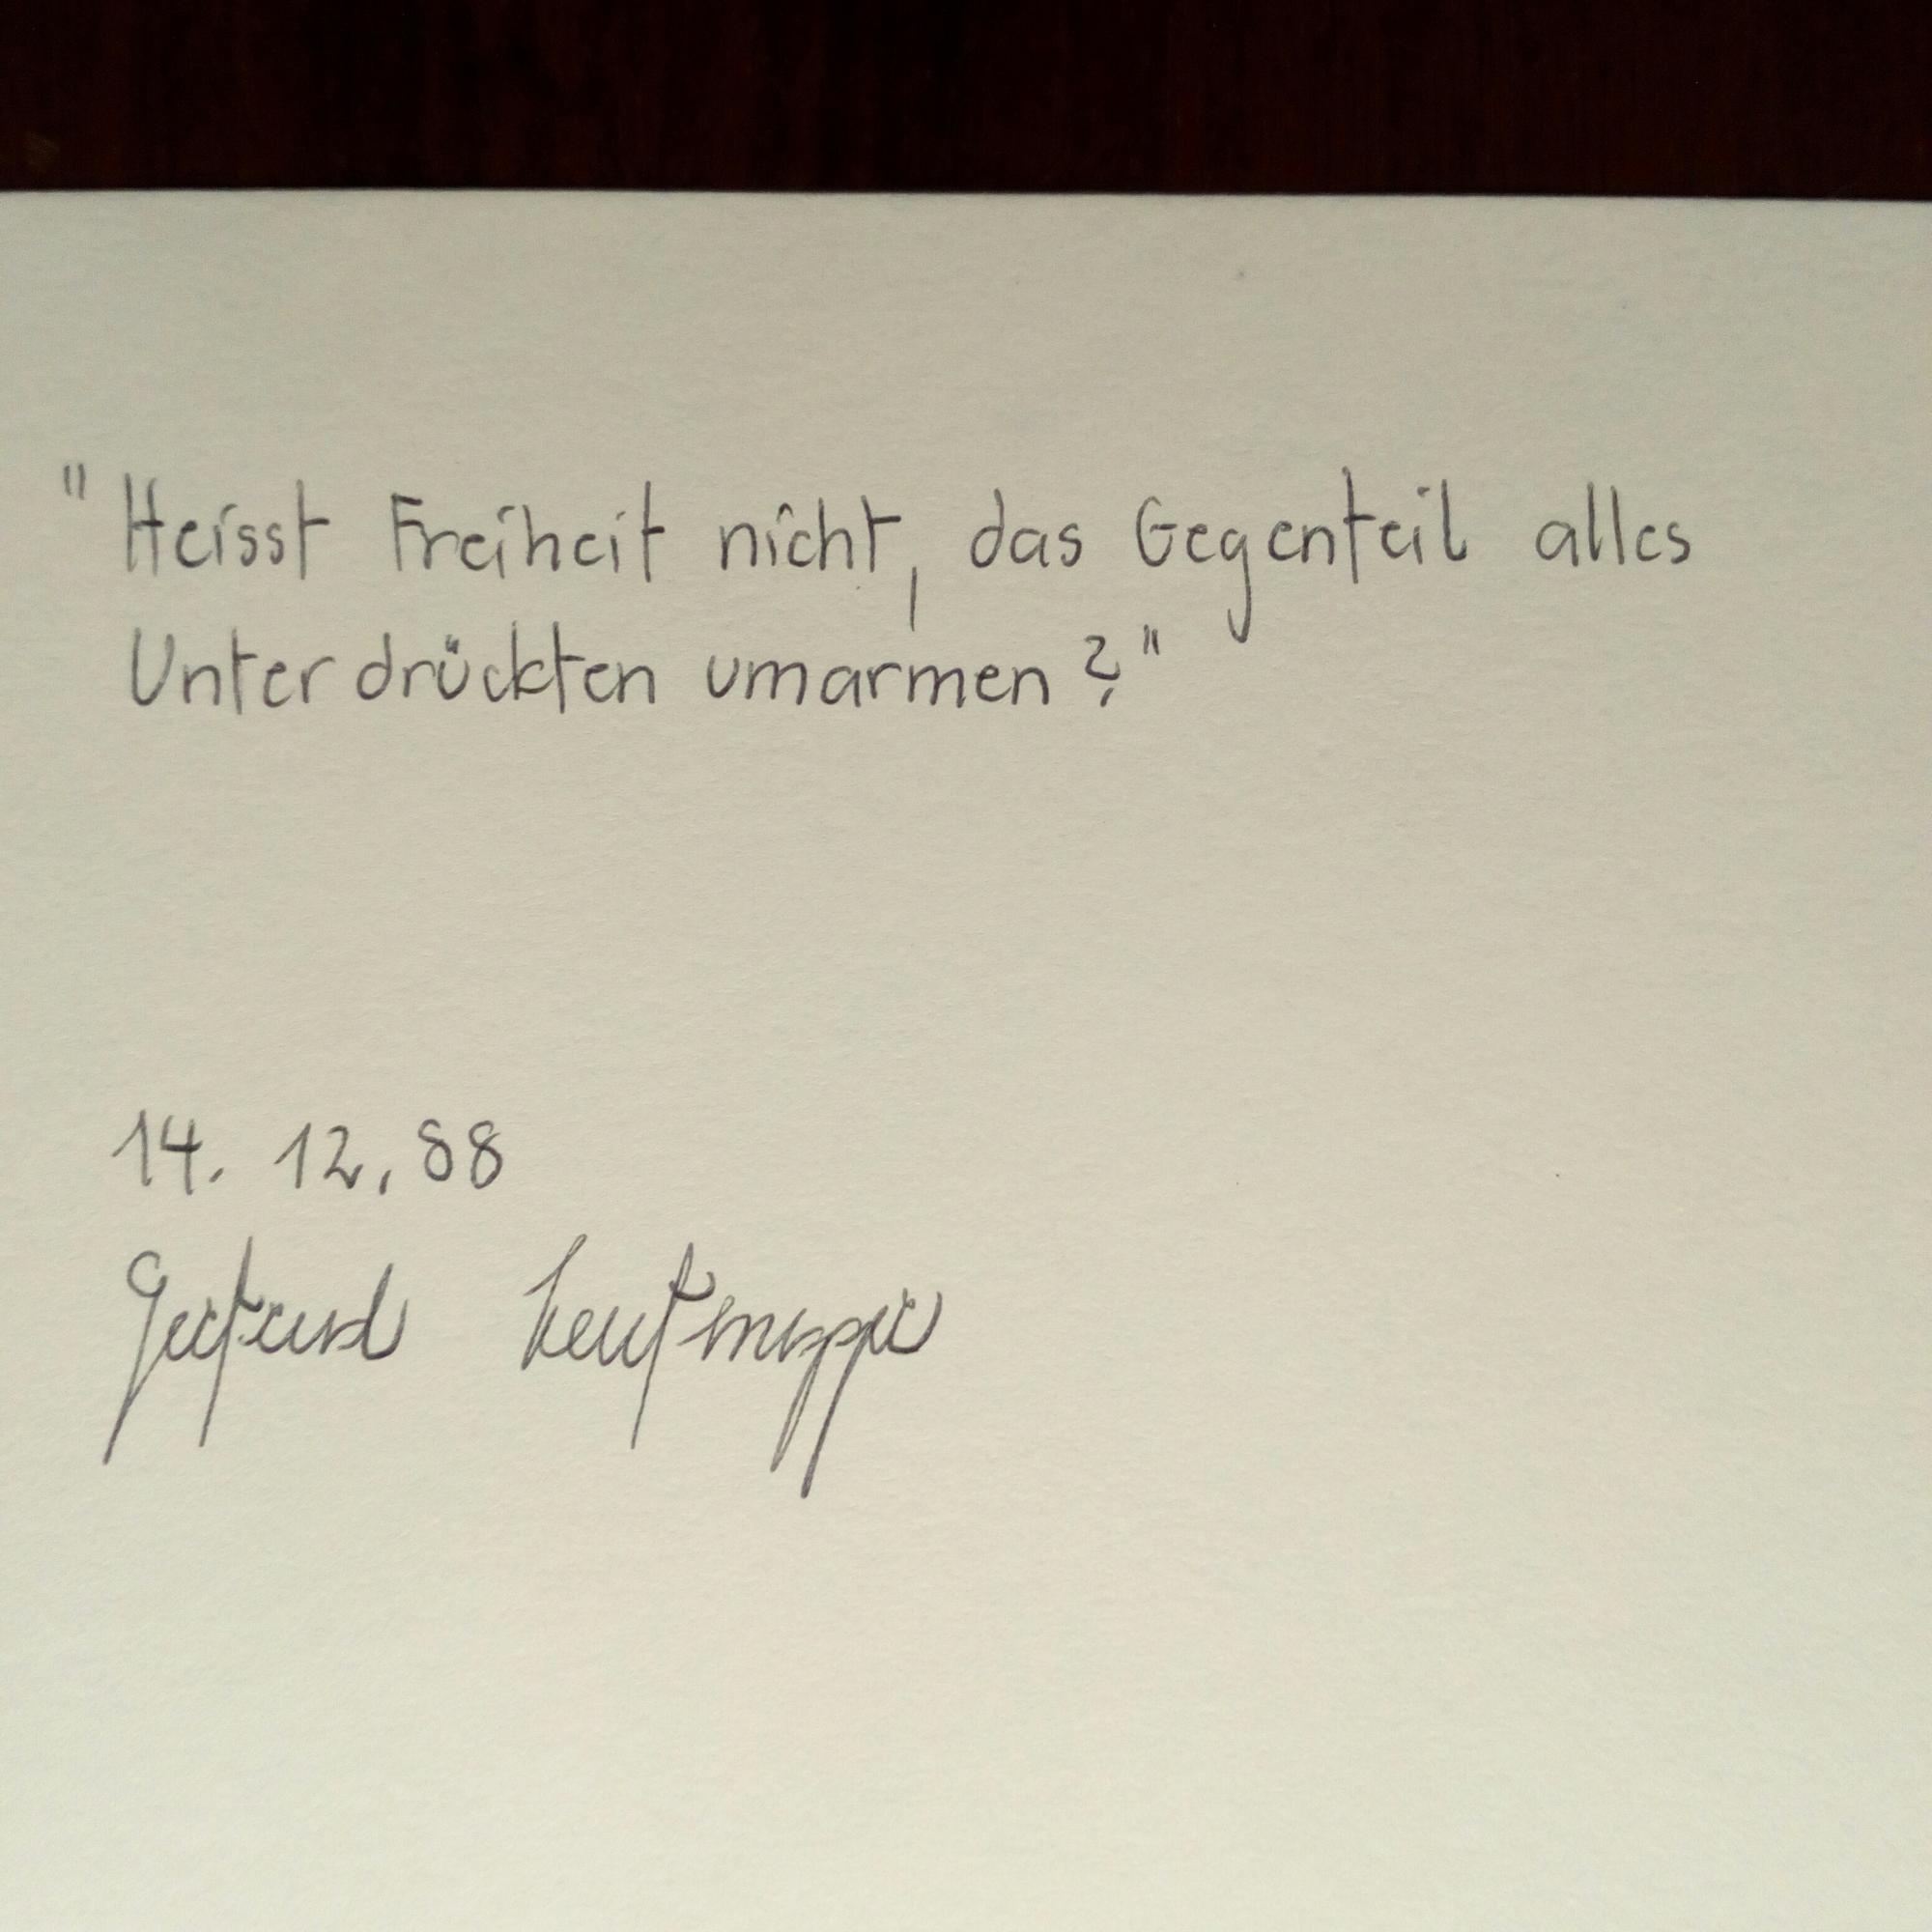 "Heisst Freiheit nicht, das Gegenteil alles
Unterdrückten umarmen?"
14. 12. 88
Gertrud Leutenegger